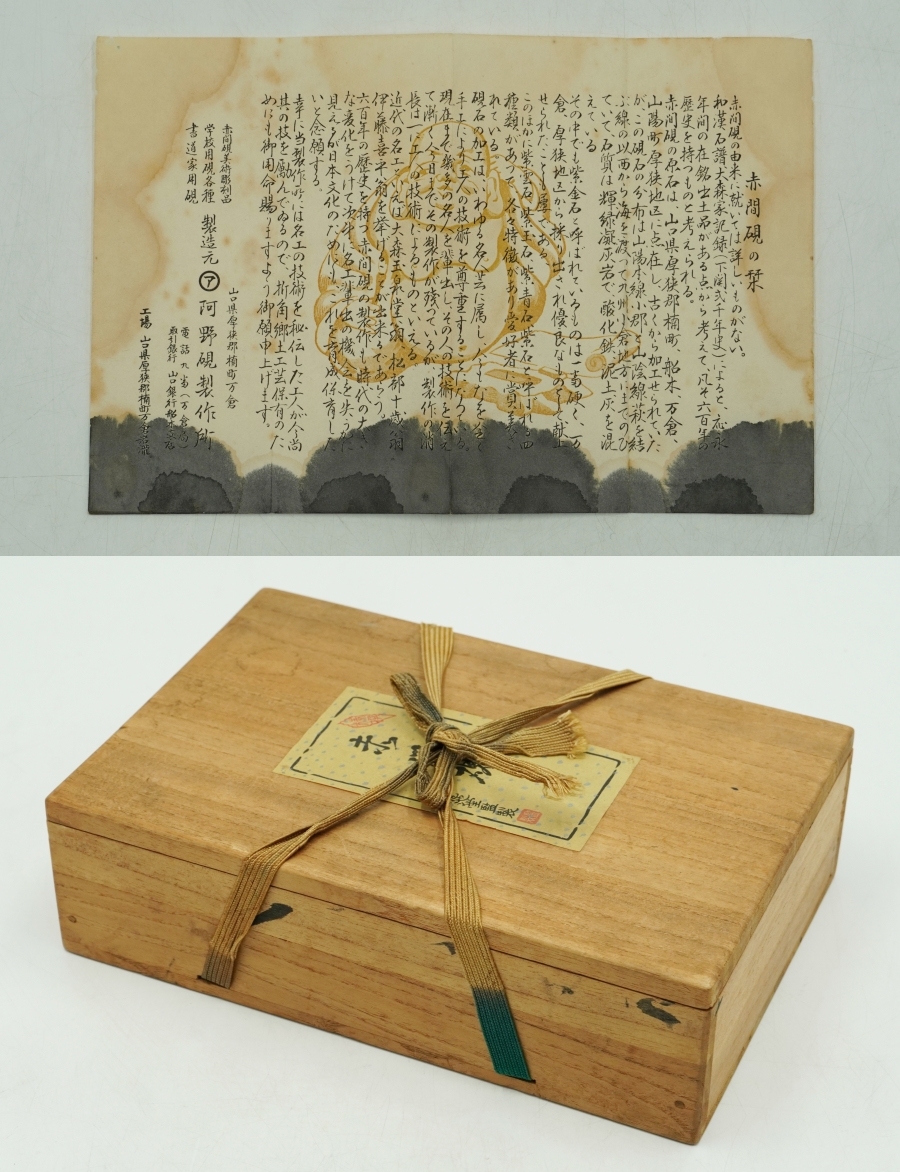 赤間硯の栞
赤間硯の由来に就いては詳しいものがない。
和漢石譜大森家記録(下関弐千年史)によると、応永
年間の在銘出土品がある点から考えて、凡そ六百年の
歴史を持つものと考えられる。
赤間硯の原石は、山口県厚狭郡楠町、船木、万倉、
山陽町厚狭地区に点在し、古くから加工せられてた
がこの硯石の分布は山陽本線小郡と山陰線萩を結
ぶ線の以西から海を渡って九州小倉地方にまでのび
ていて、石質は輝緑凝灰岩で、酸化鉄、泥土灰を混
えている
その中でも紫金石と呼ばれているものは一番硬く、万
倉、厚狭地区から採り出され優良なものとして献上
せられたことも屡々である。
このほかに紫雲石、紫玉石、紫青石、紫石と呼ばれる四
種類があって、各々特徴があり愛好者に賞美さ
れている
硯石の加工は、いわゆる名人芸に属し、
手工による工人の技術を尊重することになっている。
現在まで幾多の名人を輩出し、その人の技術を伝え
て漸く今日までその製作が残っているが、製作の消
長は一に工人の技術によるものといえる。
近代の名工といえば大森玉泉堂翁、松部十歳翁
伊藤喜平翁を挙げることが出来るであろう。
六百年の歴史を持つ赤間硯の製作も、時代の大き
な変化をうけて次第に名工輩出の機会を失うかに
見えるが日本文化のためにも、これを育成保育した
いと念願する。
幸に当製作所には名工の技術を秘伝した工人が今尚
其の技を励んでゐるので、折角郷土工芸保有のた
めにも御用命賜りますよう御願申上げます。
山口県厚狭郡楠町万倉
赤間硯美術彫刻品
学校用硯各種
書道家用硯
製造元 ㋐ 阿野硯製作所
電話 九番(万倉局)
取引銀行 山口銀行船木支店
工場 山口県厚狭郡楠町万倉岩滝
赤間
堂監製